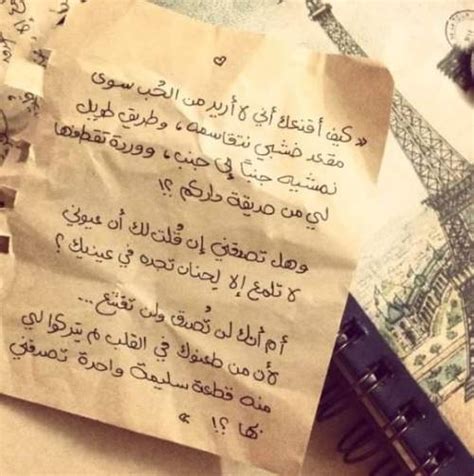 « كيف أقنعك أني لا أريد من الحُب سوى
مقعد خشبي نتقاسمه ، وطريق طويل
نمشيه جنبًا إلى جنب ، ووردة تقطفها
لي من حديقة داركم ؟!
وهل تصدقني إن قُلت لك أن عيوني
لا تلمع إلا لحنان تجده في عينيك ؟
أم أنك لن تُصدق ولن تقتنع ...
لأن من طعنوك في القلب لم يتركوا لي
منه قطعة سليمة واحدة تصدقني
بها ؟! »